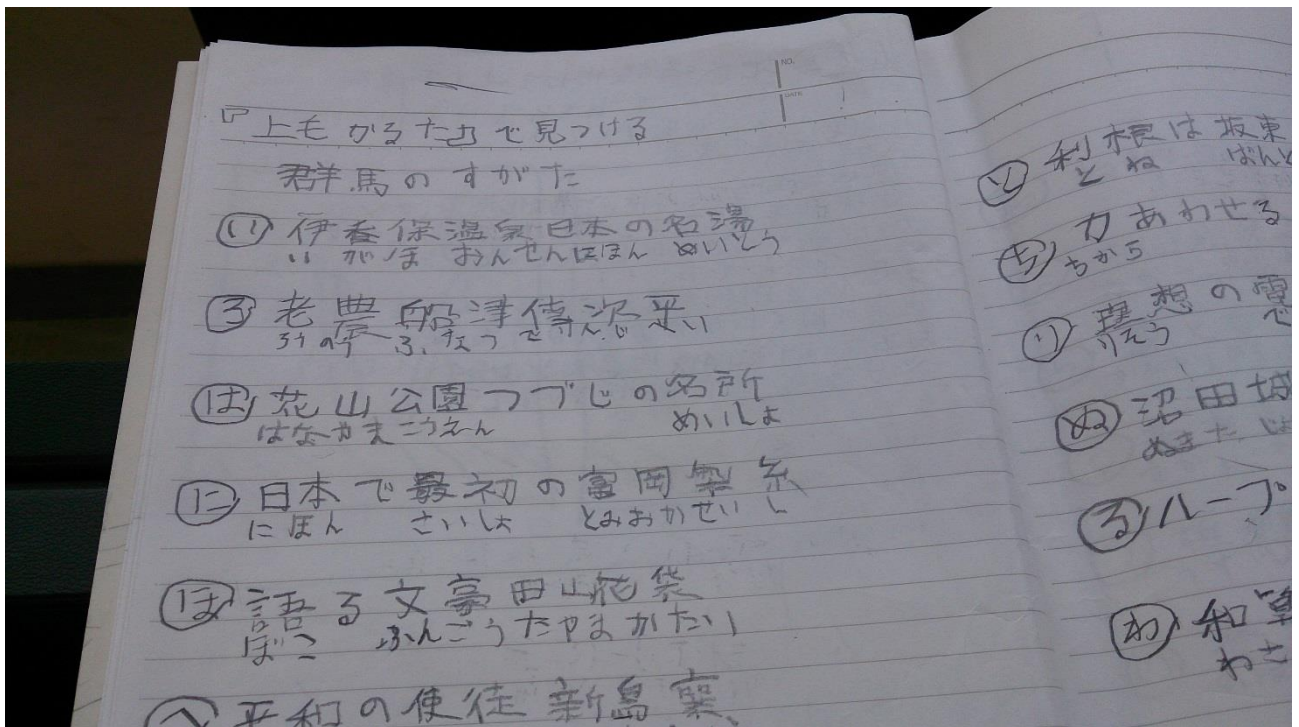 NO.
DATE
『上毛かるた』で見つける
群馬のすがた
い 伊香保温泉日本の名湯
い がほ おんせんにほん めいとう
ろ 老農船津傳次平
ろうのう ふなつ でんじ へい
は 花山公園つつじの名所
はなやまこうえん めいしょ
に 日本で最初の富岡製糸
にほん さいしょ とみおかせいし
ほ 語る文豪田山花袋
ほこ ぶんごうたやまかたい
へ 平和の使徒 新島襄
と 利根は坂東
とね ばんど
ち 力あわせる
ちから
り 理想の電
りそう で
ぬ 沼田城
ぬまたじょ
る ループ
わ 和算
わさ